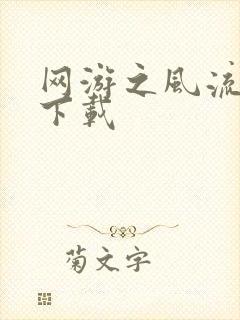 网游之风流
下载
菊文字